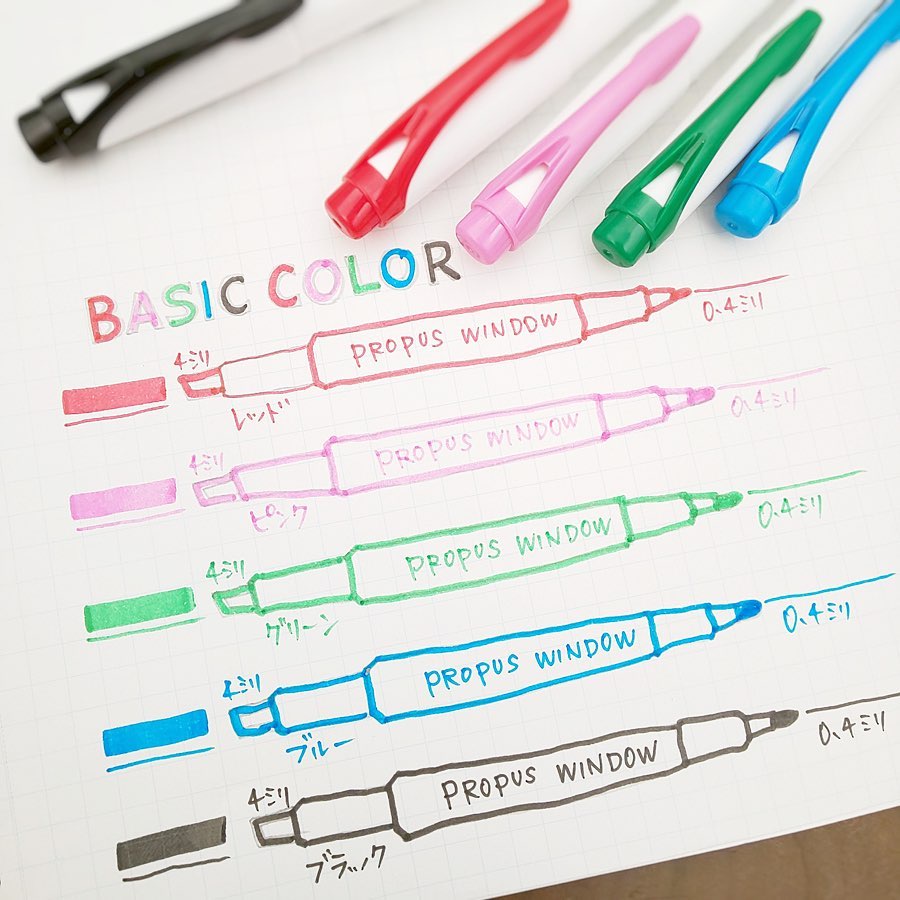 BASIC COLOR
4ミリ PROPUS WINDOW 0.4ミリ
レッド
4ミリ PROPUS WINDOW 0.4ミリ
ピンク
4ミリ PROPUS WINDOW 0.4ミリ
グリーン
4ミリ PROPUS WINDOW 0.4ミリ
ブルー
4ミリ PROPUS WINDOW 0.4ミリ
ブラック